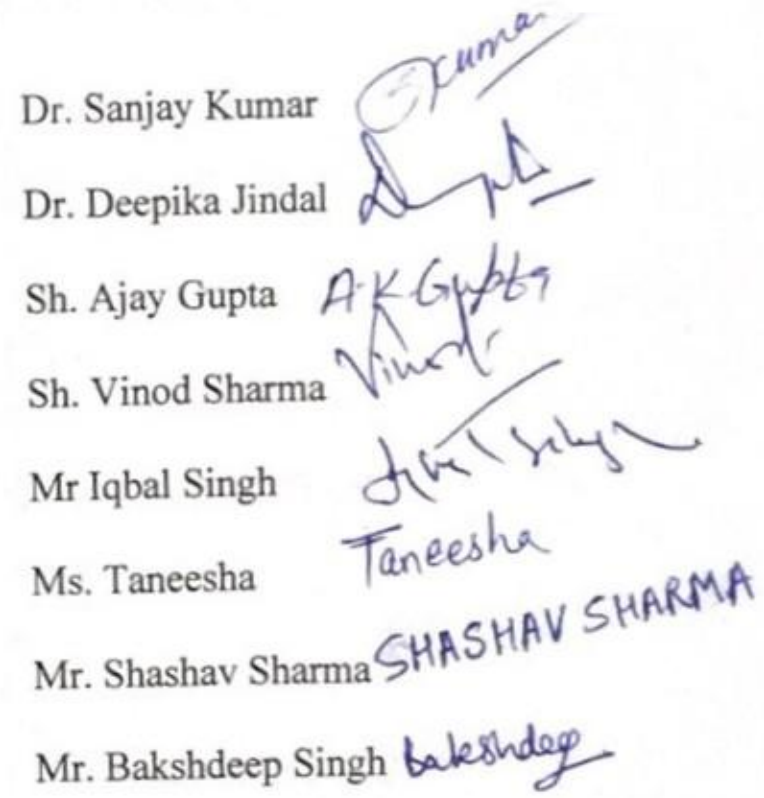 Dr. Sanjay Kumar Skumar
Dr. Deepika Jindal
Sh. Ajay Gupta A.K Gupta
Sh. Vinod Sharma Vinod
Mr Iqbal Singh
Ms. Taneesha Taneesha
Mr. Shashav Sharma SHASHAV SHARMA
Mr. Bakshdeep Singh bakshdeep